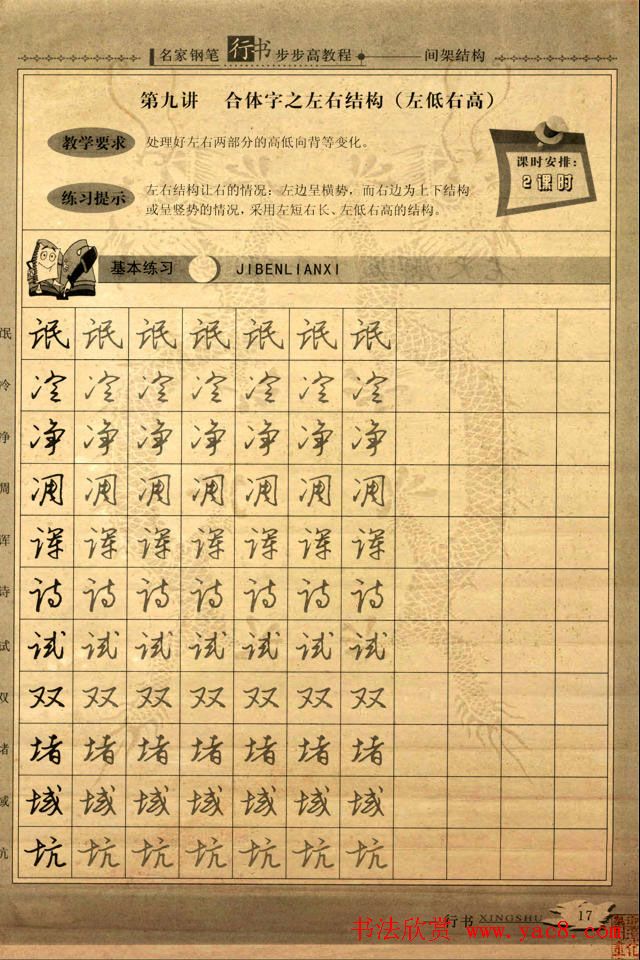 名家钢笔 行书 步步高教程 间架结构
第九讲 合体字之左右结构（左低右高）
教学要求 处理好左右两部分的高低向背等变化。
练习提示 左右结构让右的情况：左边呈横势，而右边为上下结构
或呈竖势的情况，采用左短右长、左低右高的结构。
课时安排：
2课时
基本练习 JIBENLIANXI
氓 氓 氓 氓 氓 氓 氓 氓
冷 冷 冷 冷 冷 冷 冷 冷
净 净 净 净 净 净 净 净
凋 凋 凋 凋 凋 凋 凋 凋
诨 诨 诨 诨 诨 诨 诨 诨
诗 诗 诗 诗 诗 诗 诗 诗
试 试 试 试 试 试 试 试
双 双 双 双 双 双 双 双
堵 堵 堵 堵 堵 堵 堵 堵
域 域 域 域 域 域 域 域
坑 坑 坑 坑 坑 坑 坑 坑
行书 XINGSHU 17
书法欣赏 www.yac8.com